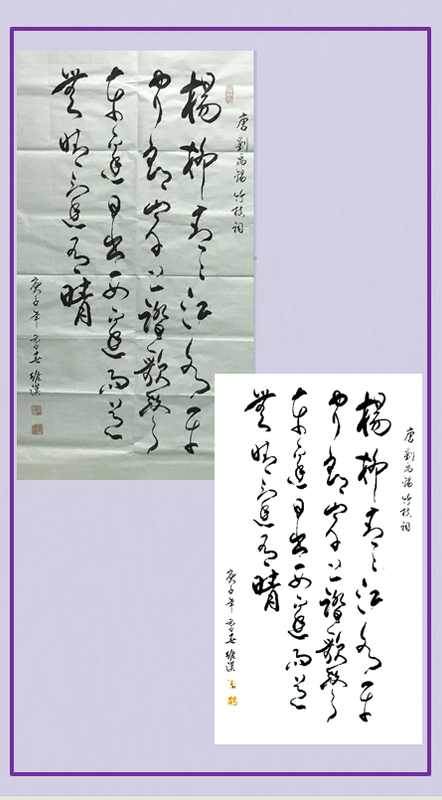 唐劉禹錫竹枝詞
楊柳青々江水平
聞郎岸上踏歌聲
東邊日出西邊雨道
無晴還有晴
庚子年春維漢
唐劉禹錫竹枝詞
楊柳青々江水平
聞郎岸上踏歌聲
東邊日出西邊雨道
無晴還有晴
庚子年春維漢